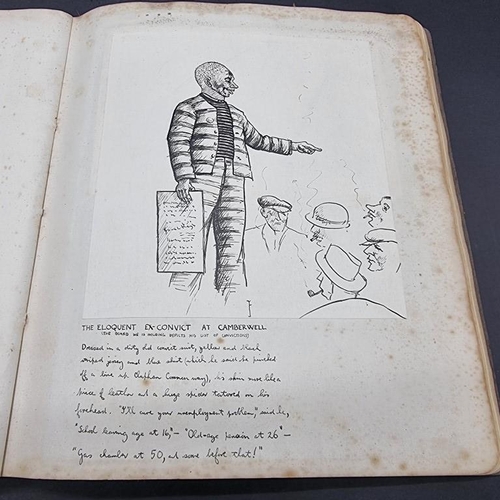 THE ELOQUENT EX-CONVICT AT CAMBERWELL
(THE BOARD HE IS HOLDING DEPICTS HIS LIST OF CONVICTIONS)
Dressed in a dirty old convict suit, yellow and black
striped jersey and blue shirt (which he said he pinched
off a line up Clapham Common way), his skin more like a
piece of leather and a huge spider tattooed on his
forehead. "I'll cure your unemployment problem," said he,
"School leaving age at 16," – "Old-age pension at 26" –
"Gas chamber at 50, and some before that!"